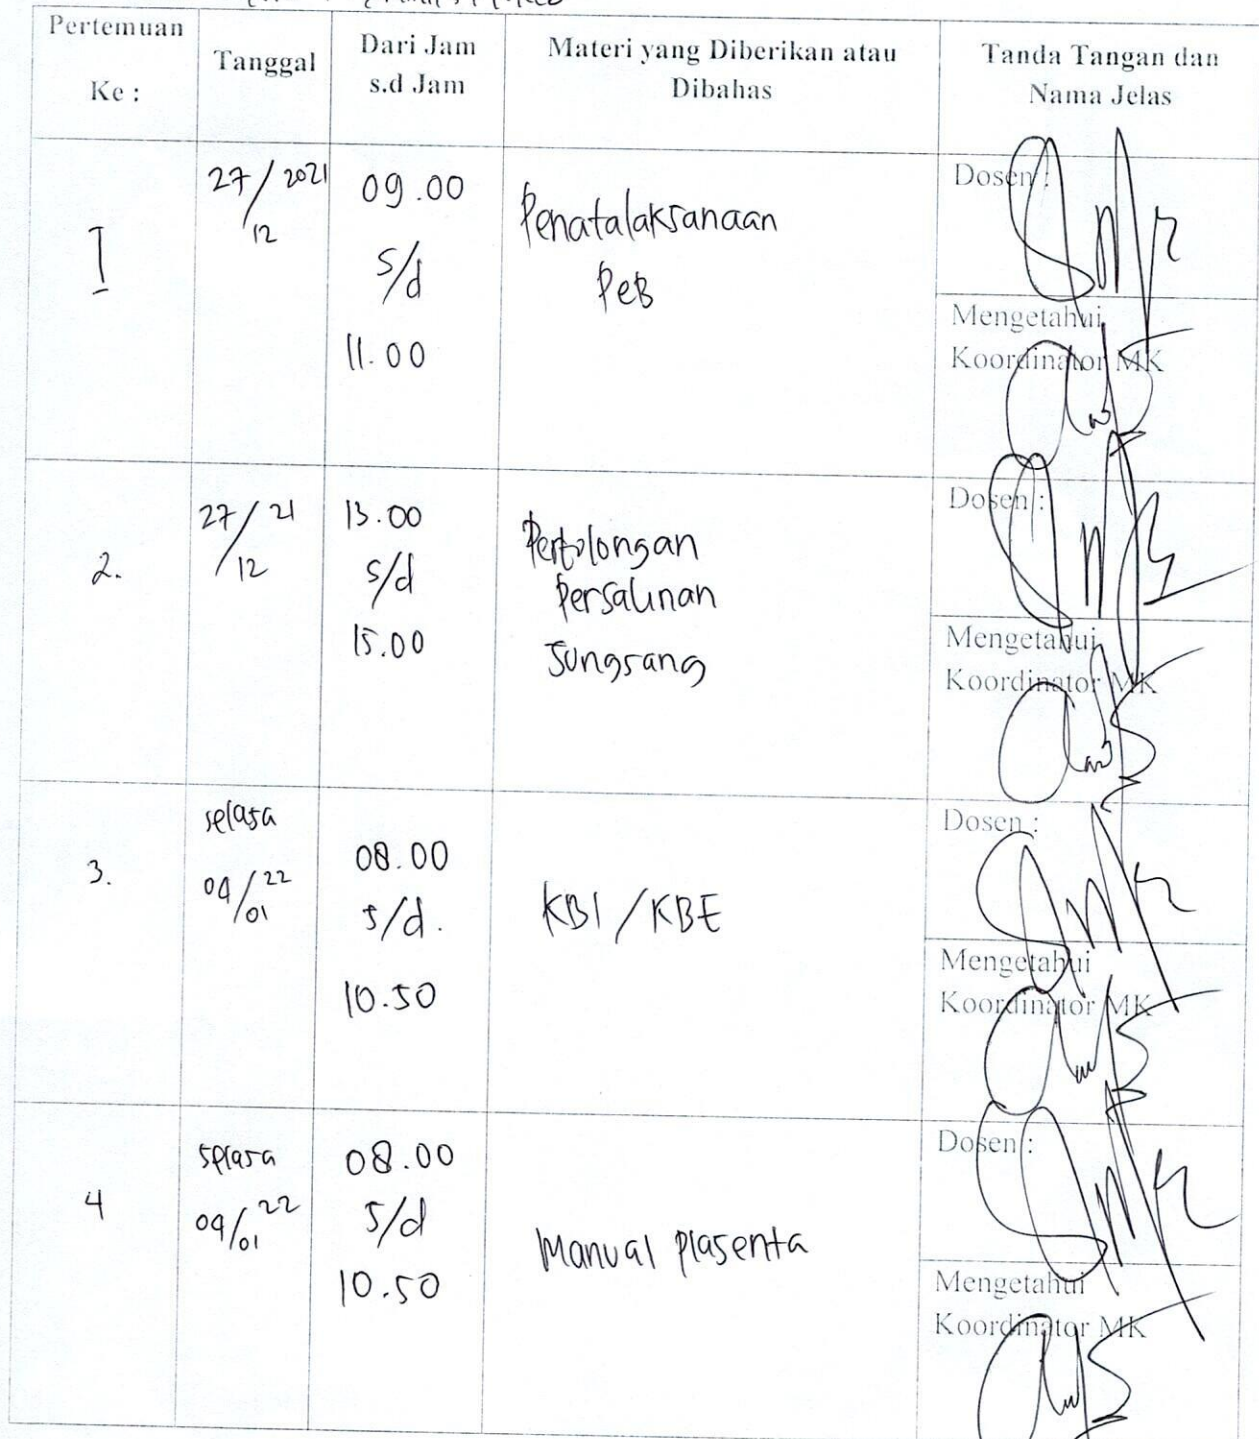 Pertemuan
Ke :
Tanggal
Dari Jam
s.d Jam
Materi yang Diberikan atau
Dibahas
Tanda Tangan dan
Nama Jelas
I
27/12 2021
09.00
s/d
11.00
Penatalaksanaan
PeB
Dosen :
Mengetahui
Koordinator MK
2.
27/12 21
13.00
s/d
15.00
Pertolongan
Persalinan
Sungsang
Dosen :
Mengetahui
Koordinator MK
3.
selasa
04/01 22
08.00
s/d.
10.50
KBI / KBE
Dosen :
Mengetahui
Koordinator MK
4
selasa
04/01 22
08.00
s/d
10.50
Manual plasenta
Dosen :
Mengetahui
Koordinator MK